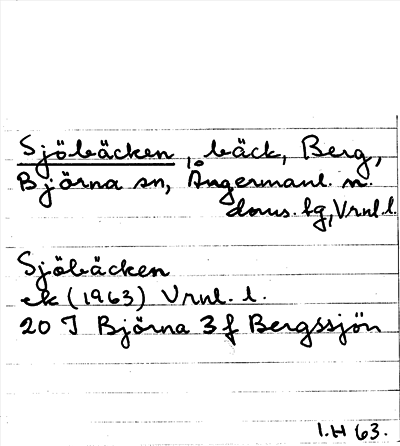 Sjöbäcken, bäck, Berg,
Björna sn, Ångermanl. n.
doms. fg, Vrnl.l.
Sjöbäcken
ek (1963) Vrnl. l.
20 J Björna 3 f Bergssjön
I.H 63.